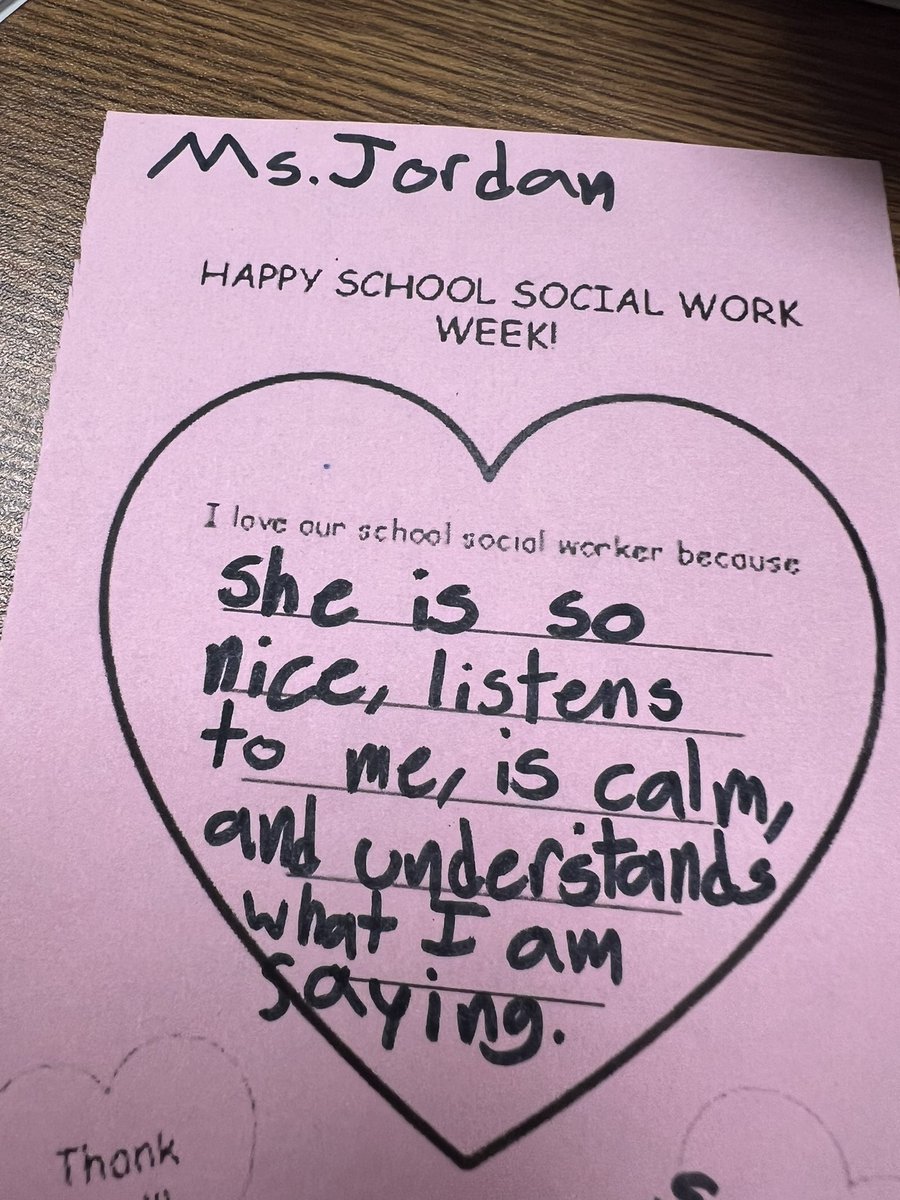 Ms. Jordan
HAPPY SCHOOL SOCIAL WORK
WEEK!
I love our school social worker because
she is so
nice, listens
to me, is calm,
and understands
what I am
saying.
Thank